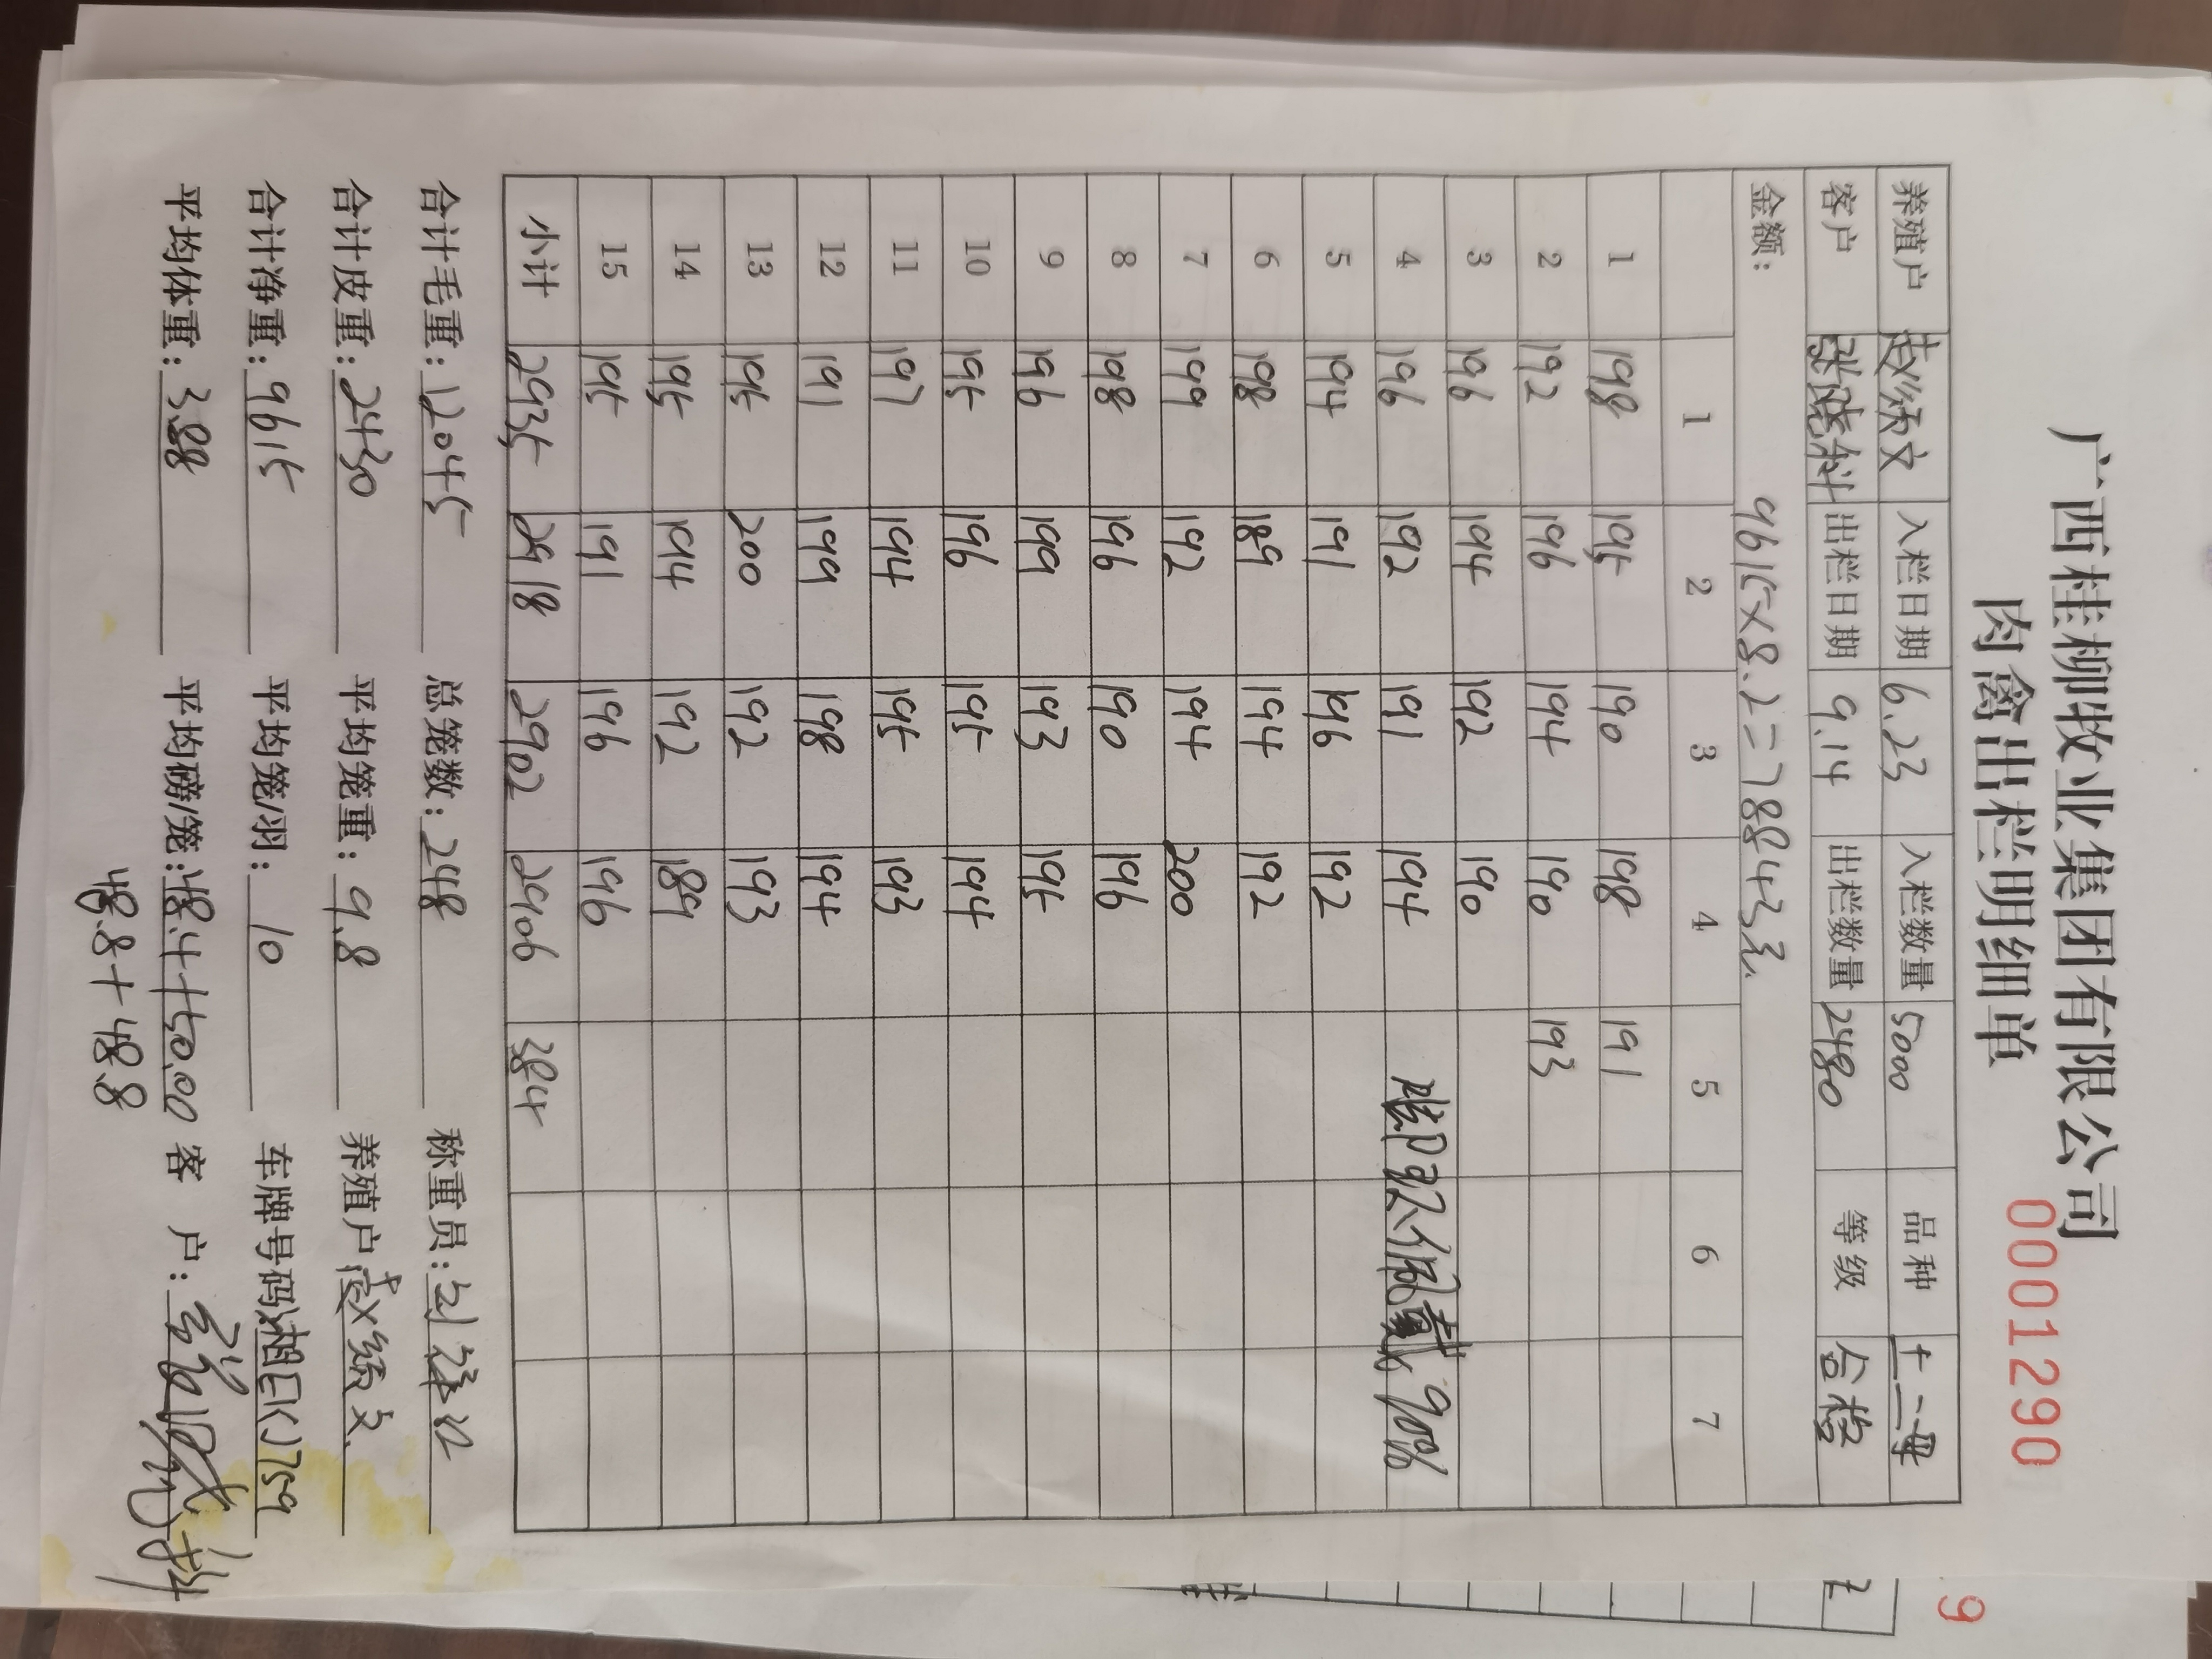 广西桂柳牧业集团有限公司
肉禽出栏明细单 00012909
养殖户 赵绤文 入栏日期 6.23 入栏数量 5000 品种 土二号
客户 出栏日期 9.14 出栏数量 2480 等级 合格
金额： 9615×8.2=78843元
1 2 3 4 5 6 7
1 198 195 190 198 191
2 192 196 194 190 193
3 196 194 192 190
4 196 192 191 194 90%
5 194 191 196 192
6 198 189 194 192
7 199 192 194 200
8 198 196 190 196
9 196 199 193 195
10 195 196 195 194
11 197 194 195 193
12 191 199 198 194
13 195 200 192 193
14 195 194 192 189
15 195 191 196 196
小计 2935 2918 2902 2906 384
合计毛重：12045 总笼数：248 称重员：
合计皮重：2430 平均笼重：9.8 养殖户
合计净重：9615 平均笼/羽：10 车牌号码
平均体重：3.88 平均磅/笼：48.4+50.00 客 户：
48.8+48.8